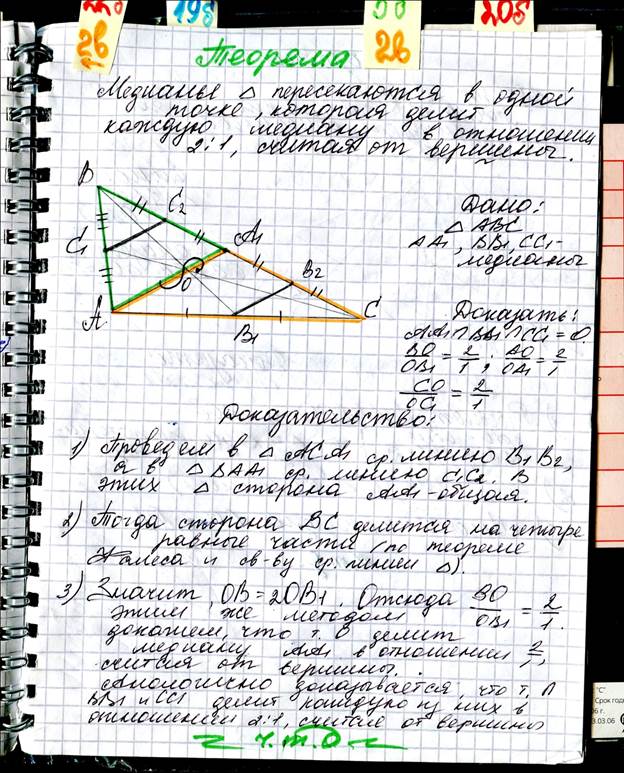 22б 19б 30 20б
2в 2в
Теорема
Медианы △ пересекаются в одной
точке, которая делит
каждую медиану в отношении
2:1, считая от вершины.
B
C₂
C₁
A₁
B₂
O
A
B₁
C
Дано:
△ ABC
AA₁, BB₁, CC₁-
медианы
Доказать:
AA₁∩BB₁∩CC₁=O
BO/OB₁ = 2/1; AO/OA₁ = 2/1
CO/OC₁ = 2/1
Доказательство:
1) Проведем в △ ACA₁ ср. линию B₁B₂,
а в △ BAA₁ ср. линию C₁C₂. В
этих △ сторона AA₁-общая.
2) Тогда сторона BC делится на четыре
равные части (по теореме
Фалеса и св-ву ср. линии △).
3) Значит, OB=2OB₁. Отсюда BO/OB₁ = 2/1.
этим же методом
докажем, что т. O делит
медиану AA₁ в отношении 2/1,
считая от вершины.
Аналогично доказывается, что т.
BB₁ и CC₁ делит каждую из них в
отношении 2:1, считая от вершины
ч.т.д
°C
Срок год
06 г.
3.03.06